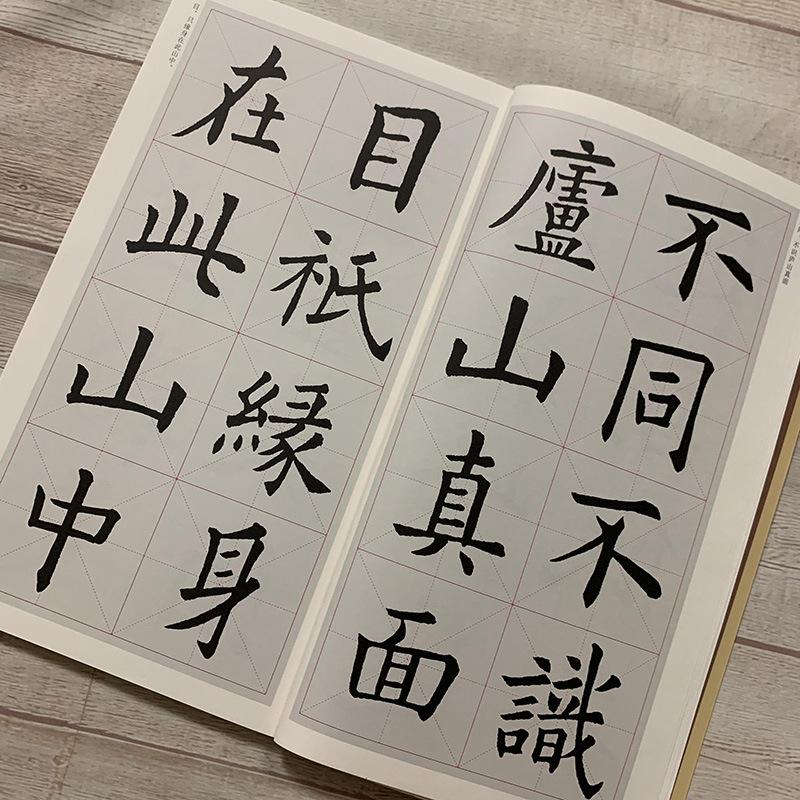 不同不識
廬山真面
不识庐山真面
目祇緣身
在此山中
目，只缘身在此山中。